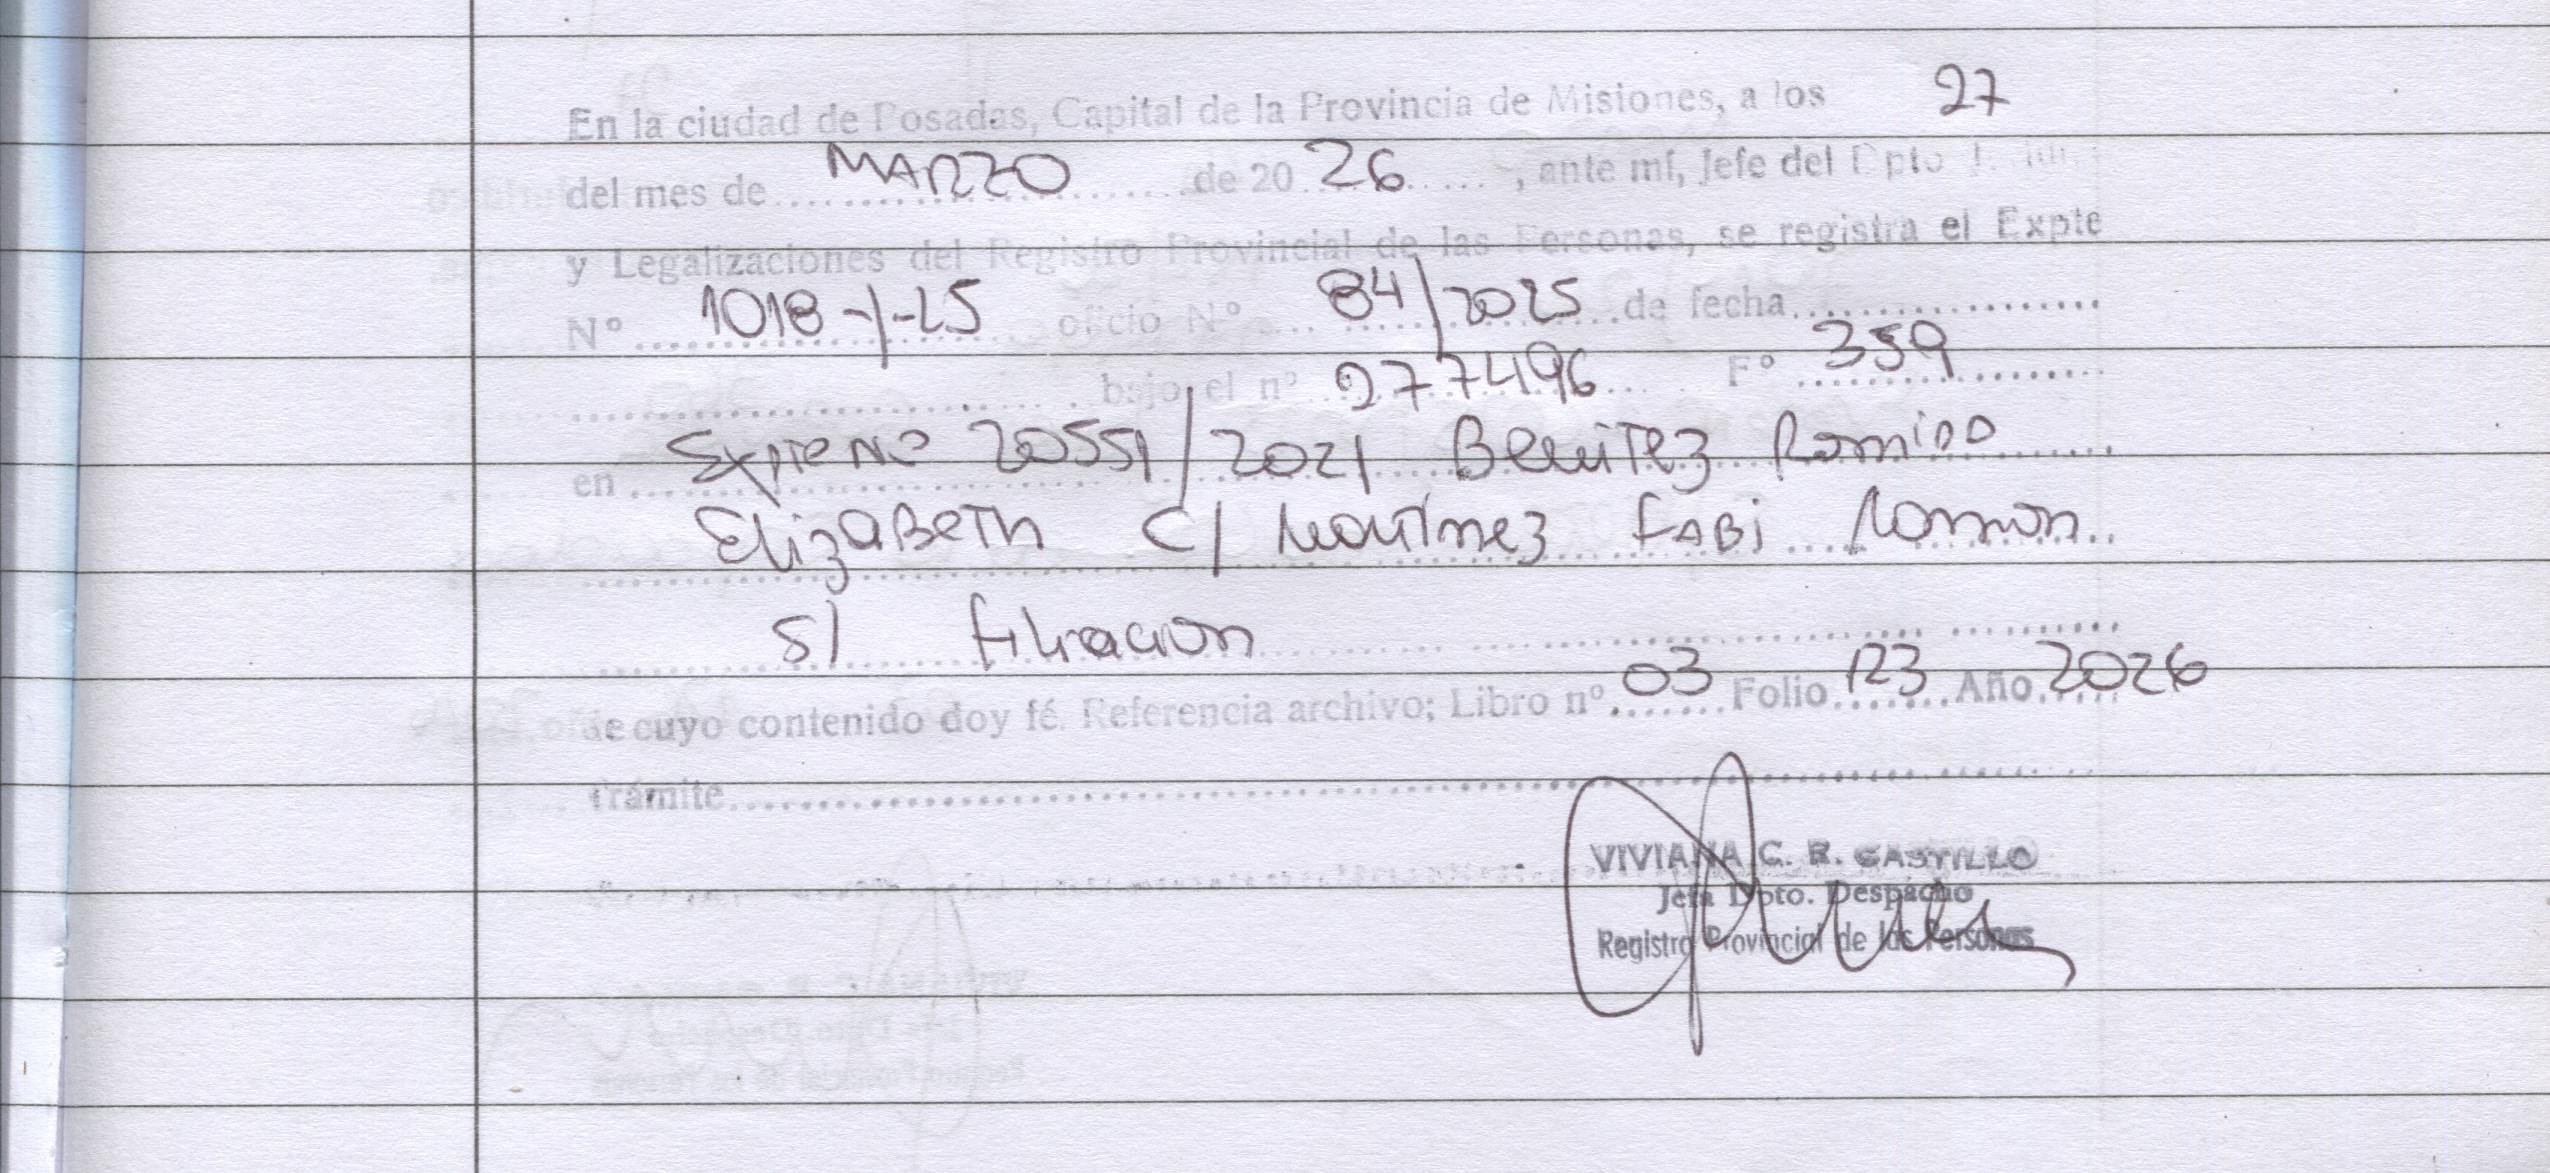 En la ciudad de Posadas, Capital de la Provincia de Misiones, a los 27
del mes de MARZO de 20 26, ante mí, Jefe del Dpto
y Legalizaciones del Registro Provincial de las Personas, se registra el Expte
Nº 1018-/-25 oficio Nº 84/2025 de fecha
bajo el nº 277496 Fº 359
en Expte Nº 20551/2021 Benitez Romina
Elizabeth C/ Martinez FABI Ramon
S/ filiacion
de cuyo contenido doy fé. Referencia archivo; Libro nº 03 Folio 123 Año 2026
Trámite
VIVIANA C. R. CASTILLO
Jefa Dpto. Despacho
Registro Provincial de las Personas